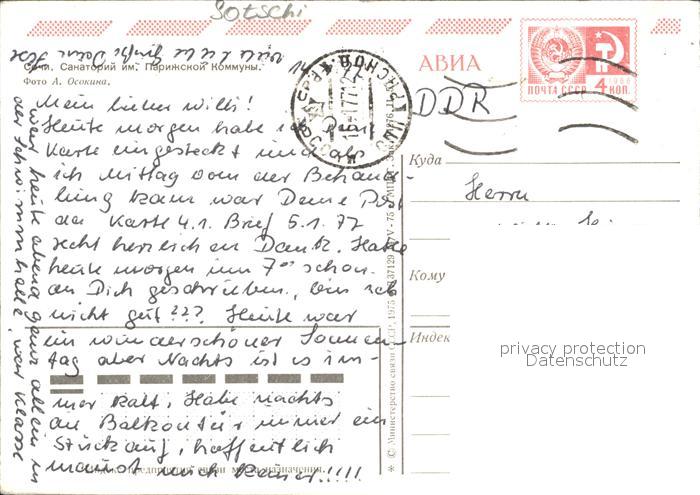 Sotschi
Сочи. Санаторий им. Парижской Коммуны.
Фото А. Осокина.
АВИА
ПОЧТА СССР 4 КОП.
1966
DDR
Mein lieber Willi!
Heute morgen habe ich Dein
Karte eingesteckt und als
ich Mittag von der Behand-
lung kam war Deine Post
da Karte 4.1. Brief 5.1.77
recht herzlichen Dank. Habe
heute morgen um 7°° schon
an Dich geschrieben, bin ich
nicht gut??? Heute war
ein wunderschöner Sonnen-
tag aber Nachts ist es im-
mer kalt. Habe nachts
die Balkontür immer ein
Stück auf, hoffentlich
maust mich keiner!!!!!
war heute abend ganz allein in
der Schwimmhalle, war klasse
Куда
Herrn
Кому
Индекс
privacy protection
Datenschutz
© Министерство связи СССР, 1975
Индекс предприятия связи места назначения.